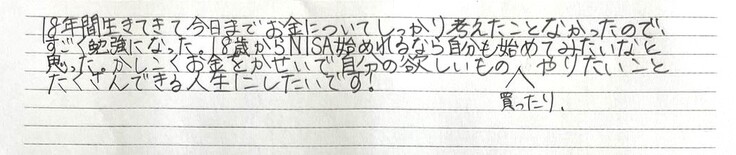 18年間生きてきて今日までお金についてしっかり考えたことなかったので、
すごく勉強になった。18歳からNISA始めれるなら自分も始めてみたいなと
思った。かしこくお金をかせいで自分の欲しいもの買ったり、やりたいこと
たくさんできる人生にしたいです!